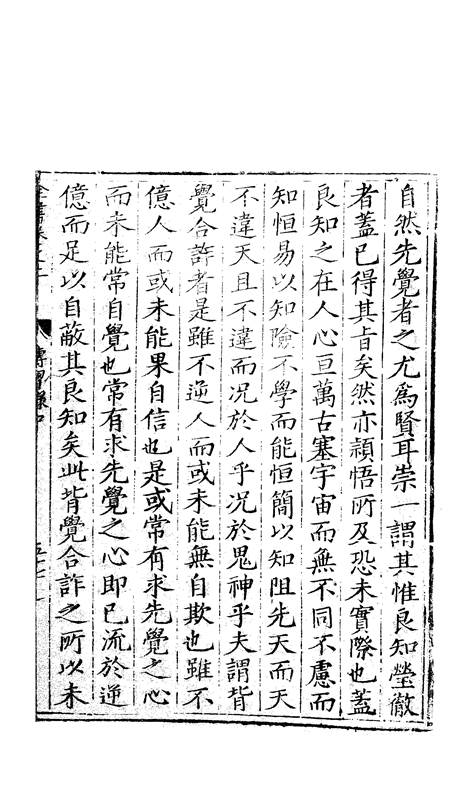 自然先覺者之尤爲賢耳崇一謂其惟良知瑩徹
者蓋已得其旨矣然亦穎悟所及恐未實際也蓋
良知之在人心亘萬古塞宇宙而無不同不慮而
知恒易以知險不學而能恒簡以知阻先天而天
不違天且不違而况於人乎况於鬼神乎夫謂背
覺合詐者是雖不逆人而或未能無自欺也雖不
億人而或未能果自信也是或常有求先覺之心
而未能常自覺也常有求先覺之心即已流於逆
億而足以自蔽其良知矣此背覺合詐之所以未
全書卷之二 傳習錄中